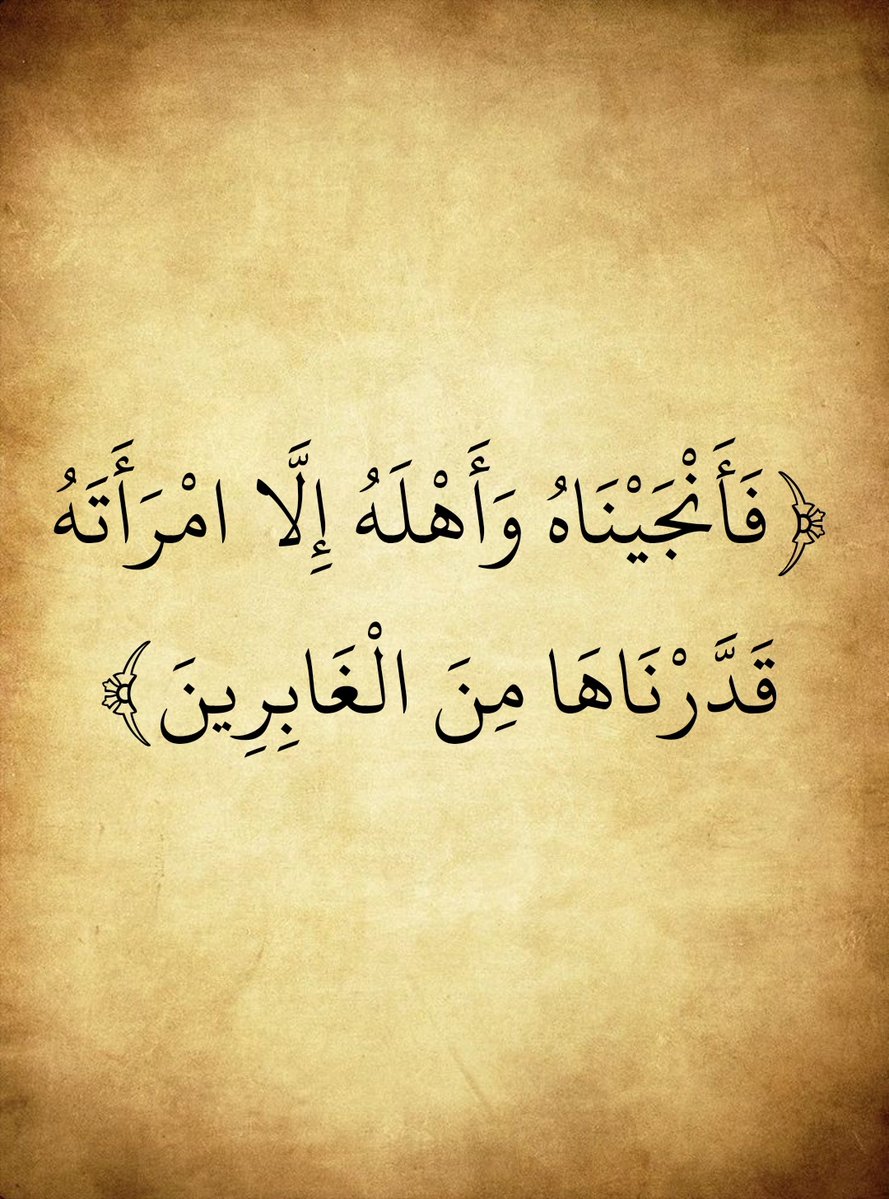 ﴿فَأَنْجَيْنَاهُ وَأَهْلَهُ إِلَّا امْرَأَتَهُ
قَدَّرْنَاهَا مِنَ الْغَابِرِينَ﴾